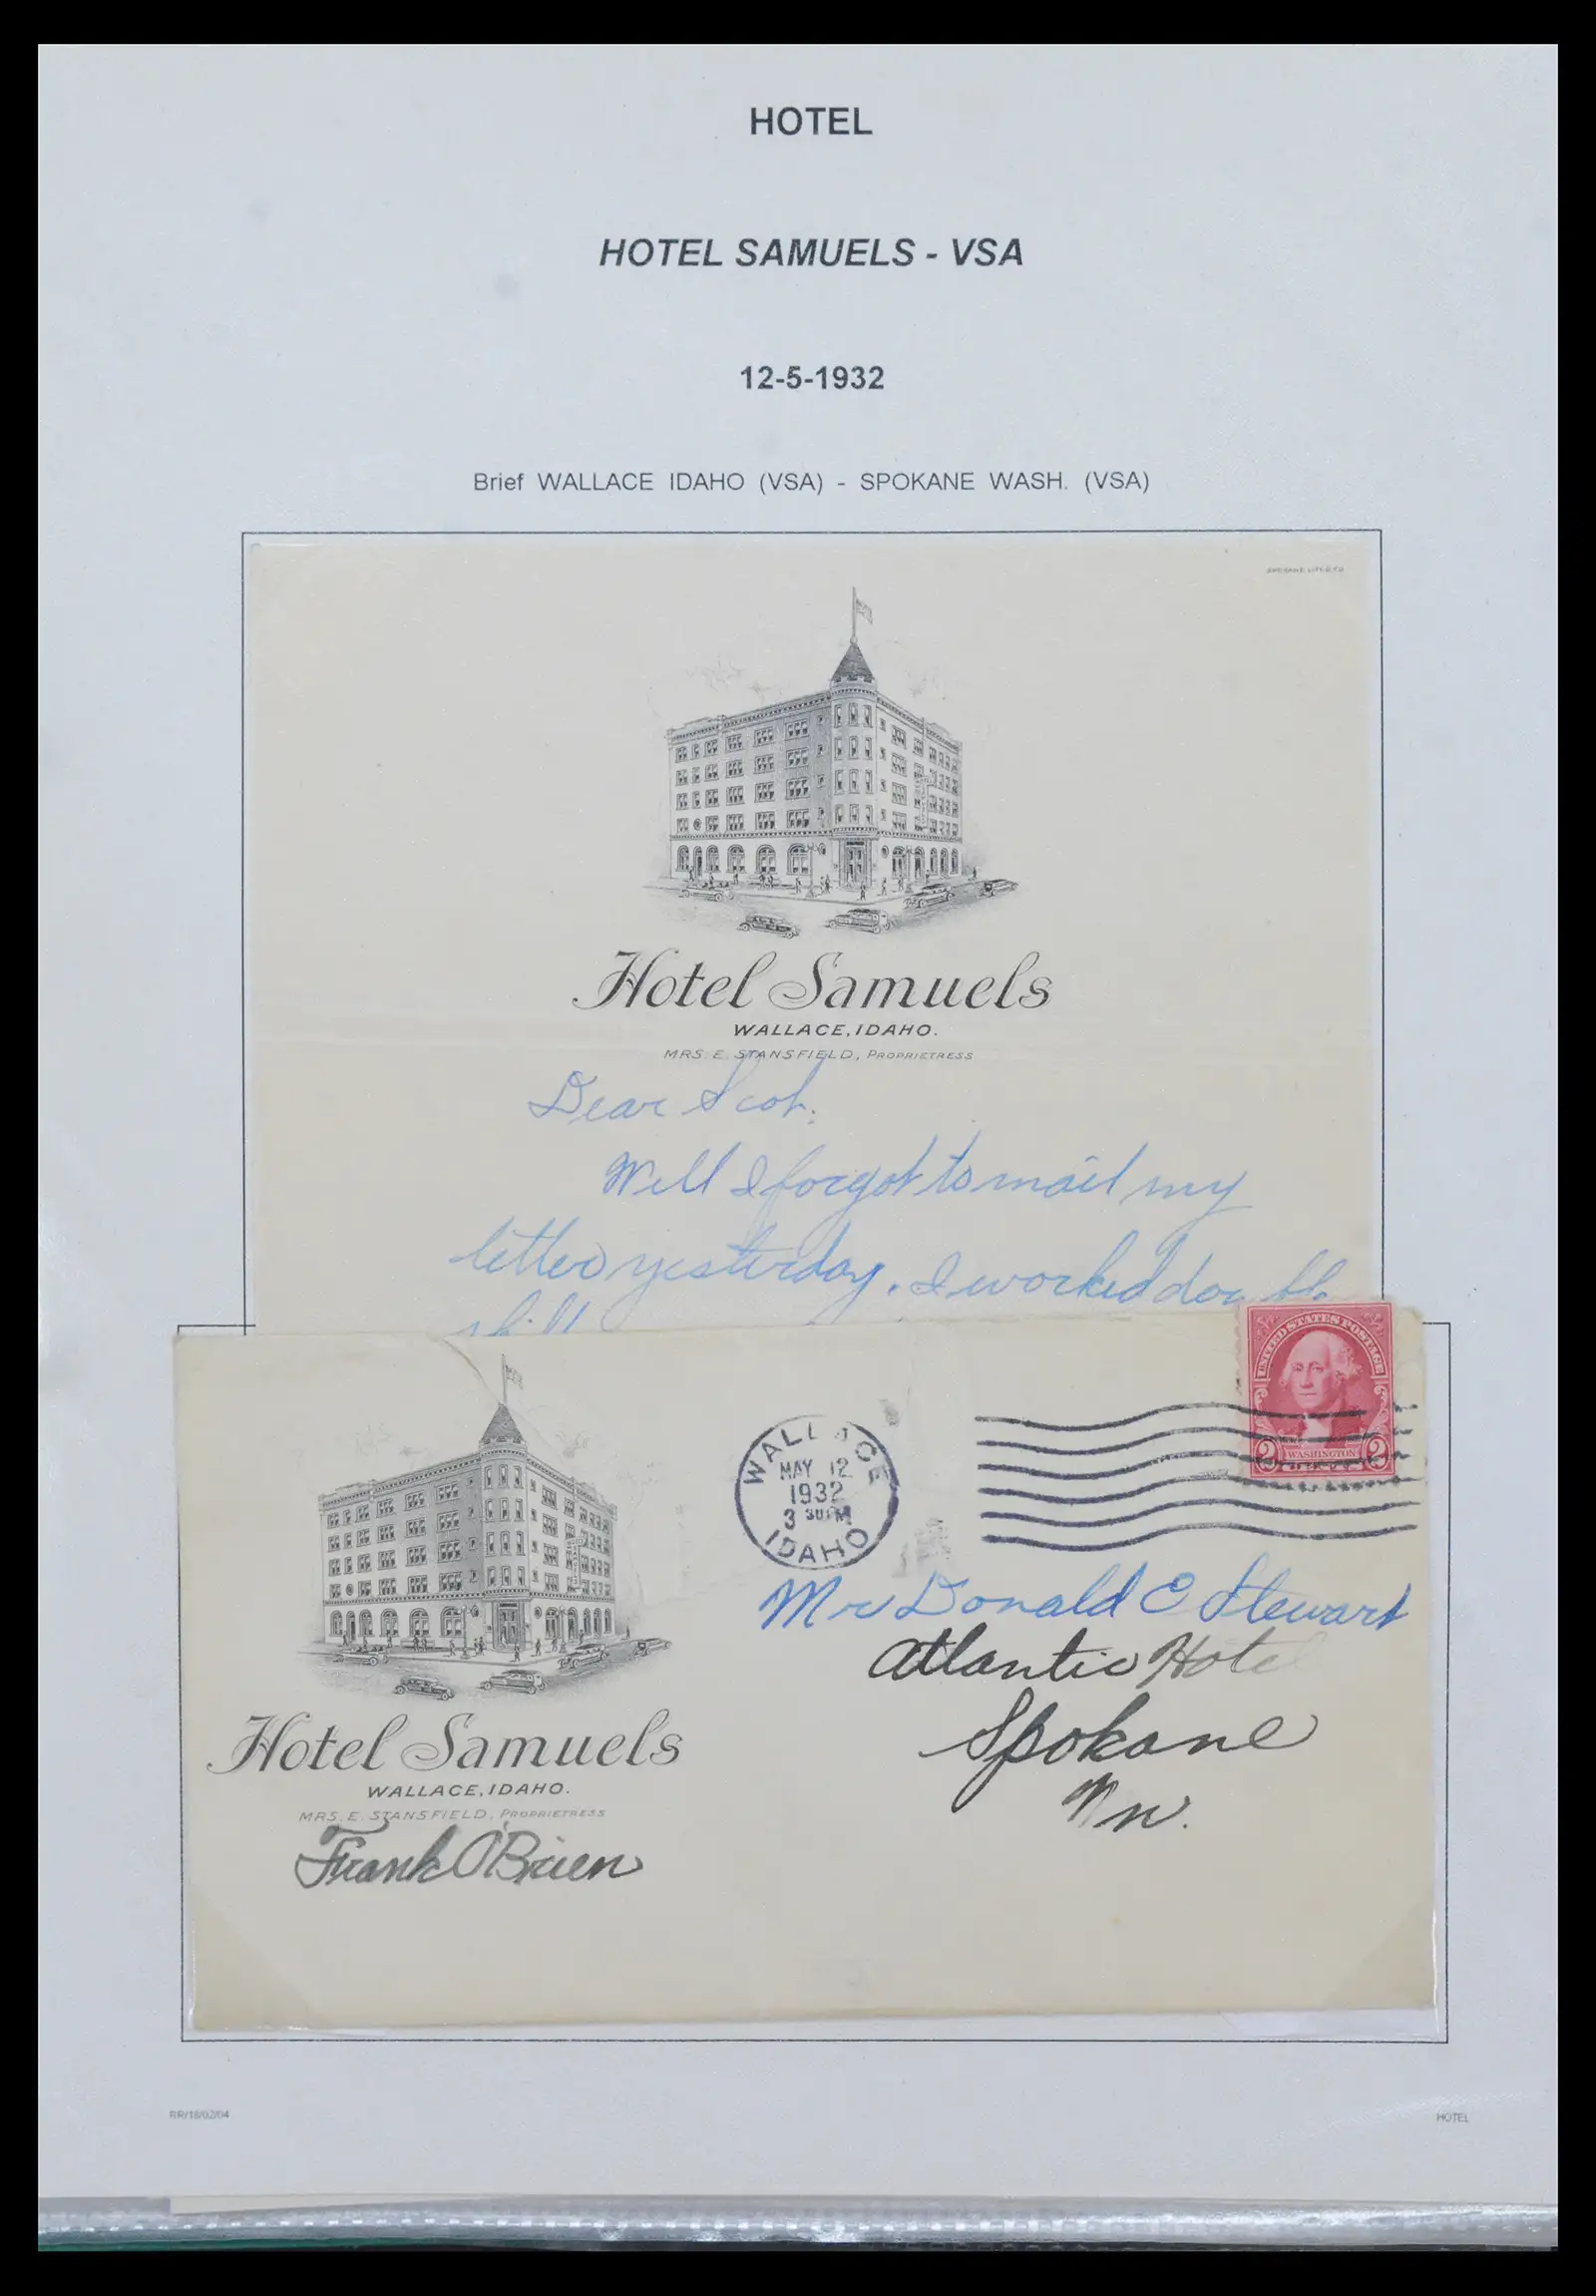 HOTEL
HOTEL SAMUELS - VSA
12-5-1932
Brief WALLACE IDAHO (VSA) - SPOKANE WASH. (VSA)
Hotel Samuels
WALLACE, IDAHO.
MRS. E. STANSFIELD, PROPRIETRESS
Dear Scot:
Well I forgot to mail my
letter yesterday. I worked double
UNITED STATES POSTAGE
2 WASHINGTON 2
WALLACE
MAY 12
1932
3 30 PM
IDAHO
Mr Donald E Stewart
Atlantic Hotel
Spokane
Wn.
Hotel Samuels
WALLACE, IDAHO.
MRS. E. STANSFIELD, PROPRIETRESS
Frank O'Brien
RR/18/02/04
HOTEL